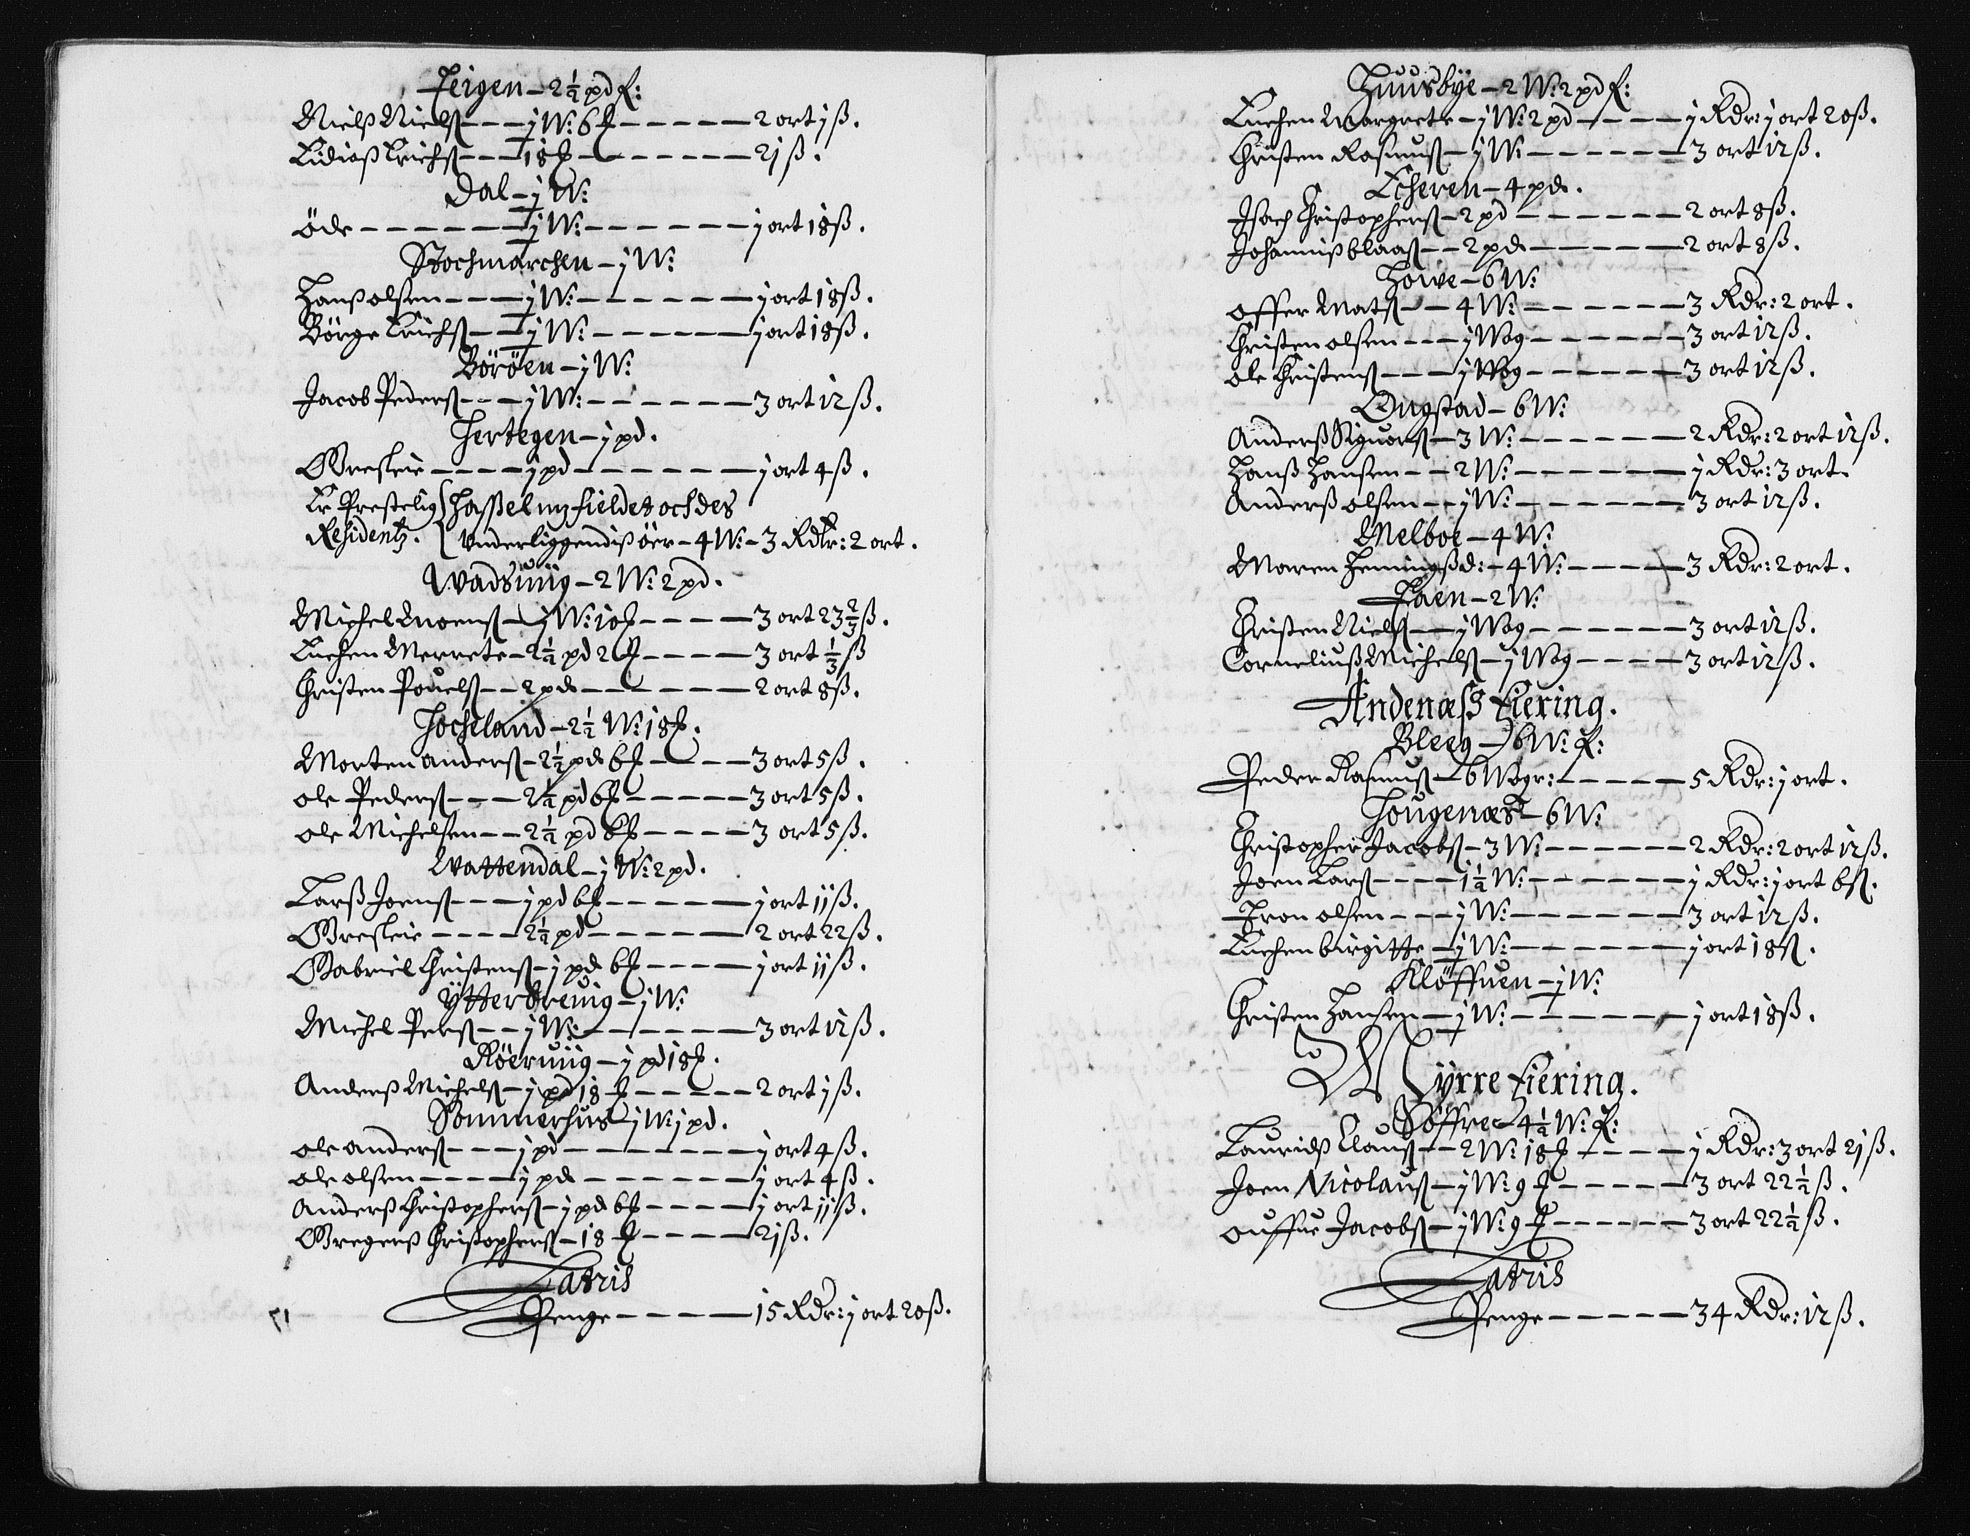 Feigen – 2½ pd f:
Nielß Nielß – – – j W: 6 ℔ – – – – – 2 ort j ß.
Lidiaß Erichß – – – 18 ℔ – – – – – 2j ß.
Dal – j W:
öde – – – – – – j W: – – – – – j ort 18 ß.
Stochmarchen – j W:
Hanß olsen – – – j W: – – – – – j ort 18 ß.
Börge Erichß – – j W: – – – – – j ort 18 ß.
Böröen – j W:
Jacob Pederß – – – j W: – – – – – 3 ort 12 ß.
Hertegen – j pd.
Greskeie – – – – j pd – – – – – j ort 4 ß.
Er Prestelig Hassel mz fieldet och des
Residentz. Vnderliggendiß öer – 4 W: – 3 Rdlr: 2 ort.
Wadsuiig – 2 W: 2 pd.
Michel Moenß – j W: 10 ℔ – – – – 3 ort 23⅔ ß.
Enchen Merrete – 2½ pd 2 ℔ – – – – 3 ort ⅓ ß
Christen Pouelß – – 2 pd – – – – – 2 ort 8 ß.
Hocheland – 2½ W: 18 ℔.
Morten anderß – 2½ pd 6 ℔ – – – 3 ort 5 ß.
ole Pederß – – – 2½ pd 6 ℔ – – – – 3 ort 5 ß.
ole Michelsen – – 2½ pd 6 ℔ – – – – 3 ort 5 ß.
Wattendal – j W: 2 pd.
Larß Joenß – – – j pd 6 ℔ – – – – – j ort jj ß.
Greskeie – – – – 2½ pd – – – – – 2 ort 22 ß.
Gabriel Christenß – j pd 6 ℔ – – – – j ort jj ß.
Ÿtterbreuig – j W:
Michel Perß – – j W: – – – – – 3 ort 12 ß.
Röeruiig – j pd 18 ℔.
Anderß Michelß – j pd 18 ℔ – – – – 2 ort j ß.
Sommerhus j W: j pd.
ole anderß – – – j pd – – – – – – j ort 4 ß.
ole olsen – – – – j pd – – – – – j ort 4 ß.
Anderß Christopherß – j pd 6 ℔ – – – – j ort jj ß.
Gregerß Christopherß – 18 ℔ – – – – 2j ß.
Latris
Penge – – – – – 15 Rdr: j ort 20 ß.
Huusbÿe – 2 W: 2 pd f:
Enchen Margrete – j W: 2 pd – – – – j Rdr: j ort 20 ß.
Christen Rasmuß – j W: – – – – – 3 ort 12 ß.
Echeren – 4 pd.
Isach Christopherß – 2 pd – – – – – – 2 ort 8 ß.
Johanniß blaaß – – 2 pd – – – – – 2 ort 8 ß.
Howe – 6 W:
offer Matß – – 4 W: – – – – – – 3 Rdr: 2 ort.
Christen olsen – – – j Wog – – – – – 3 ort 12 ß.
ole Christenß – – – j Wog – – – – – 3 ort 12 ß.
Ongstad – 6 W:
Anderß Siguorß – 3 W: – – – – – – 2 Rdr: 2 ort 12 ß.
Hanß Hansen – – 2 W: – – – – – – j Rdr: 3 ort.
Anderß olsen – – j W: – – – – – – 3 ort 12 ß.
Melboe – 4 W:
Maren Hemingßd: – 4 W: – – – – 3 Rdr: 2 ort.
Faen – 2 W:
Christen Nielß – – j Wog – – – – – – 3 ort 12 ß.
Corneliuß Michelß – j Wog – – – – 3 ort 12 ß.
Andenæß fiering.
Bleeg – 6 W: f:
Peder Rasmuß – 6 Wogr: – – – – – 5 Rdr: j ort.
Hougenæs – 6 W:
Christopher Jacobß – 3 W: – – – – – – 2 Rdr: 2 ort 12 ß.
Joen Larß – – – – 1½ W: – – – – – – j Rdr: j ort 6 ß.
Jron olsen – – – j W: – – – – – – 3 ort 12 ß.
Enchen birgitte – j W: – – – – – – j ort 18 ß.
Klöffuen – j W:
Christen Hansen – j W: – – – – – – j ort 18 ß.
Myrre fiering.
Söffre – 4½ W: f:
Lauridß Clauß – – 2 W: 18 ℔ – – – – j Rdr: 3 ort 2j ß.
Joen Nicolauß – j W: 9 ℔ – – – – – 3 ort 22½ ß.
ouffue Jacobß – j W: 9 ℔ – – – – – 3 ort 22½ ß.
Latris
Penge – – – – – – 34 Rdr: 12 ß.